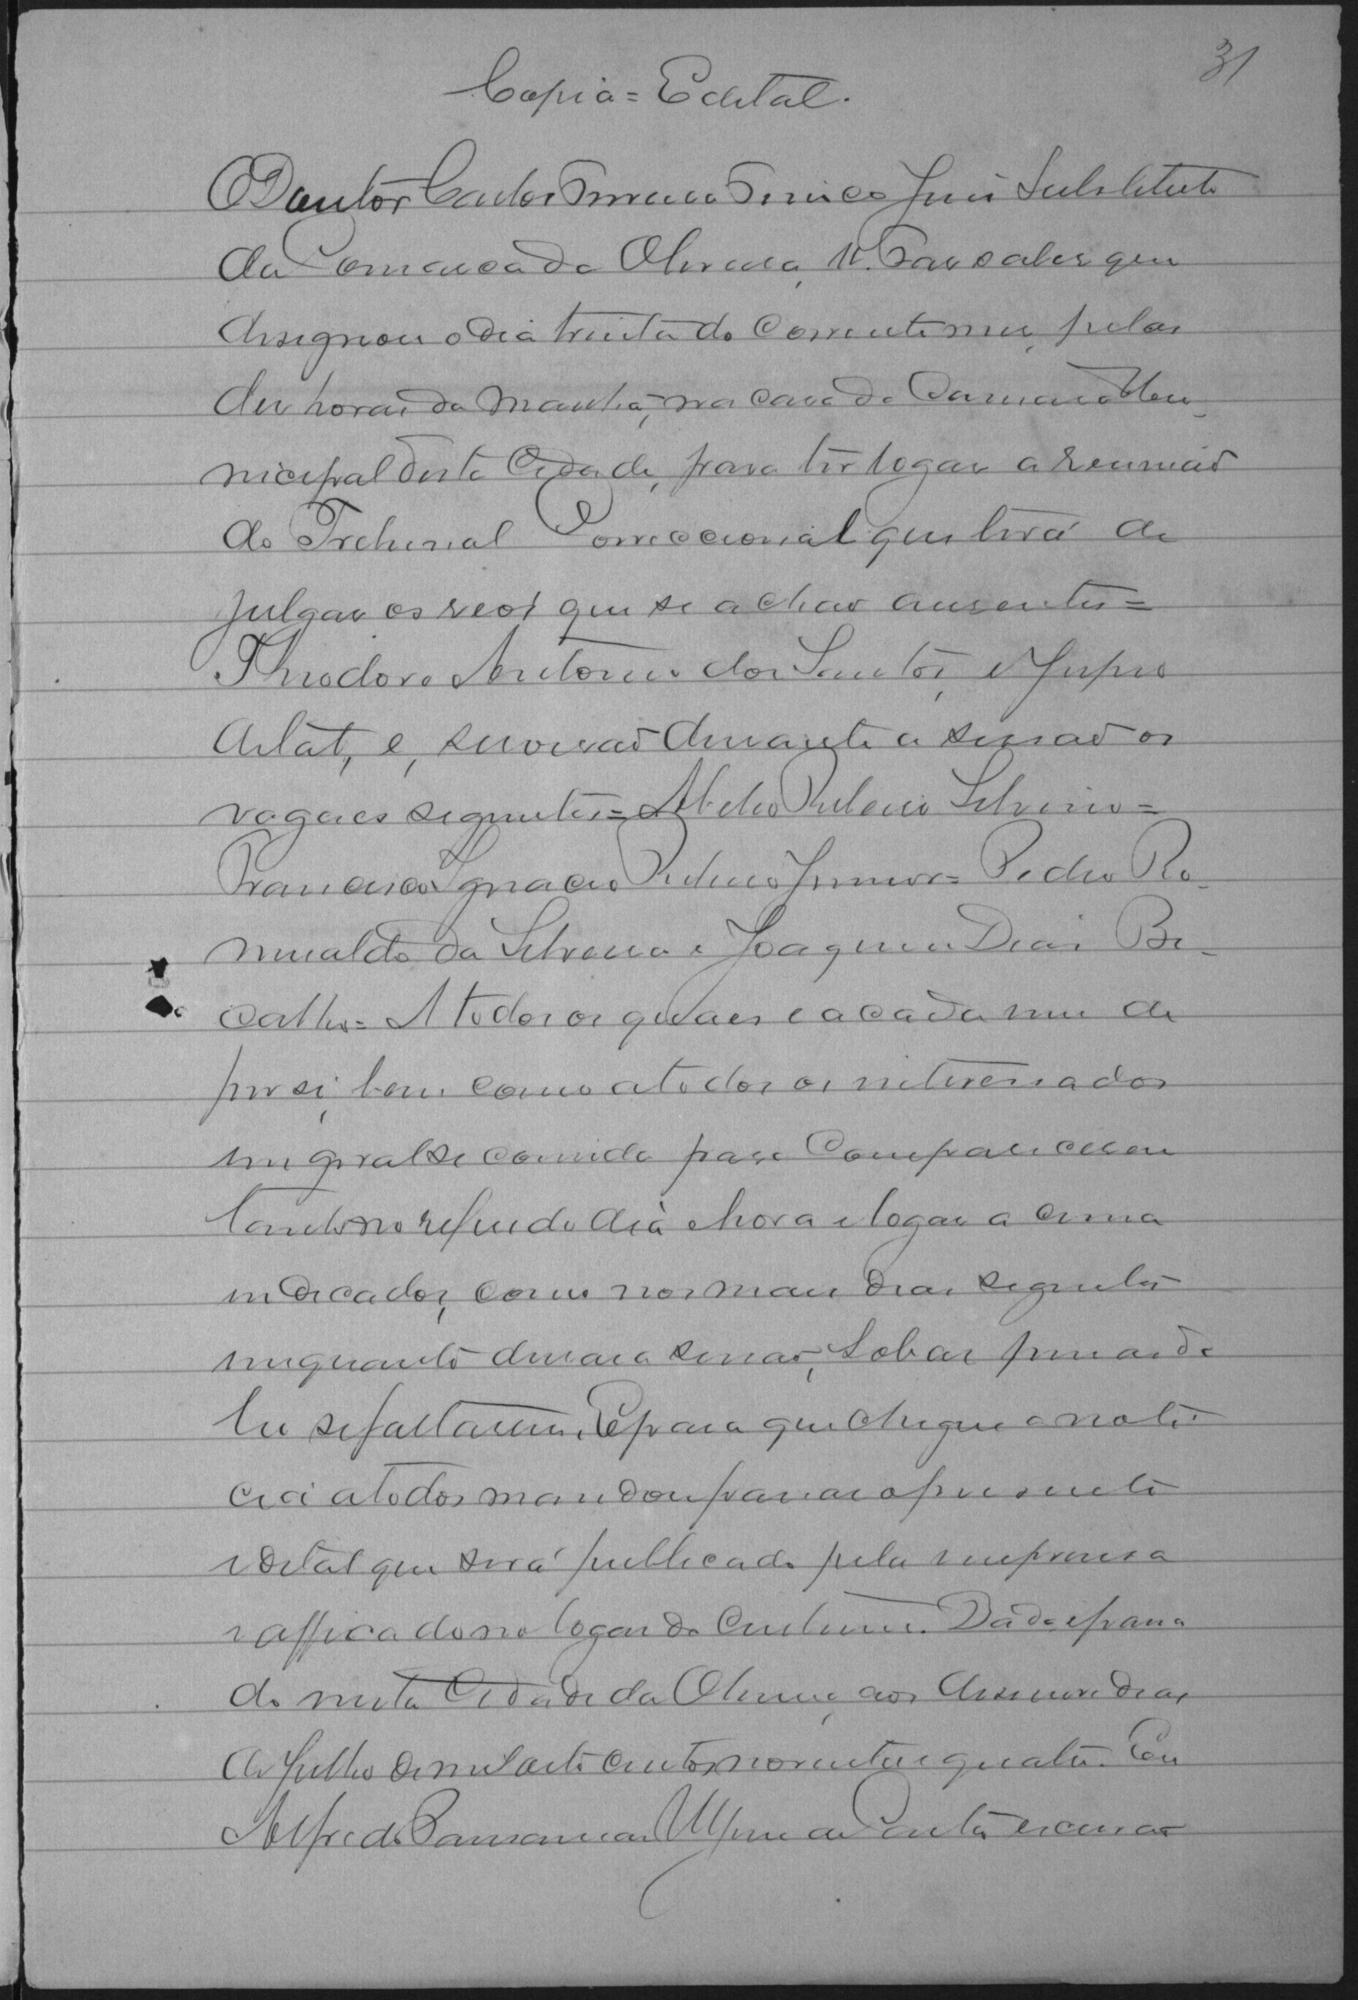 31
Copia = Edital.
O Doutor Carlos Juis Substituto
da Comarca da Oliveira, Faz saber que
designou o dia trinta do corrente mes, pelas
des horas da manhã, na casa da Camara Mu-
nicipal desta Cidade, para ter logar a reunião
do Tribunal Correccional que terá de
julgar os reos que se achao ausentes =
Theodoro Antonio dos Santos, e
e, servirão durante a sessão os
vogaes seguintes = Abilio Ribeiro Silvino =
Francisco Ignacio Ribeiro Junior = Pedro Ro-
mualdo da Silveira e Joaquim Dias Bi-
calho = A todos os quaes e a cada um de
per si, bem como a todos os interessados
em geral se convida para comparecerem
tanto no referido dia e hora e logar a cima
indicados, como nos mais dias seguintes
emquanto durar a sessão, sob as penas da
lei se faltarem. E para que chegue a noti-
cia a todos mandou passar o presente
edital que será publicado pela imprensa
e afficado no logar do custume. Dado e passa
do nesta Cidade da Oliveira, aos desenove dias
de Julho de mil oito centos noventa e quatro. Eu
Alfredo escrivão